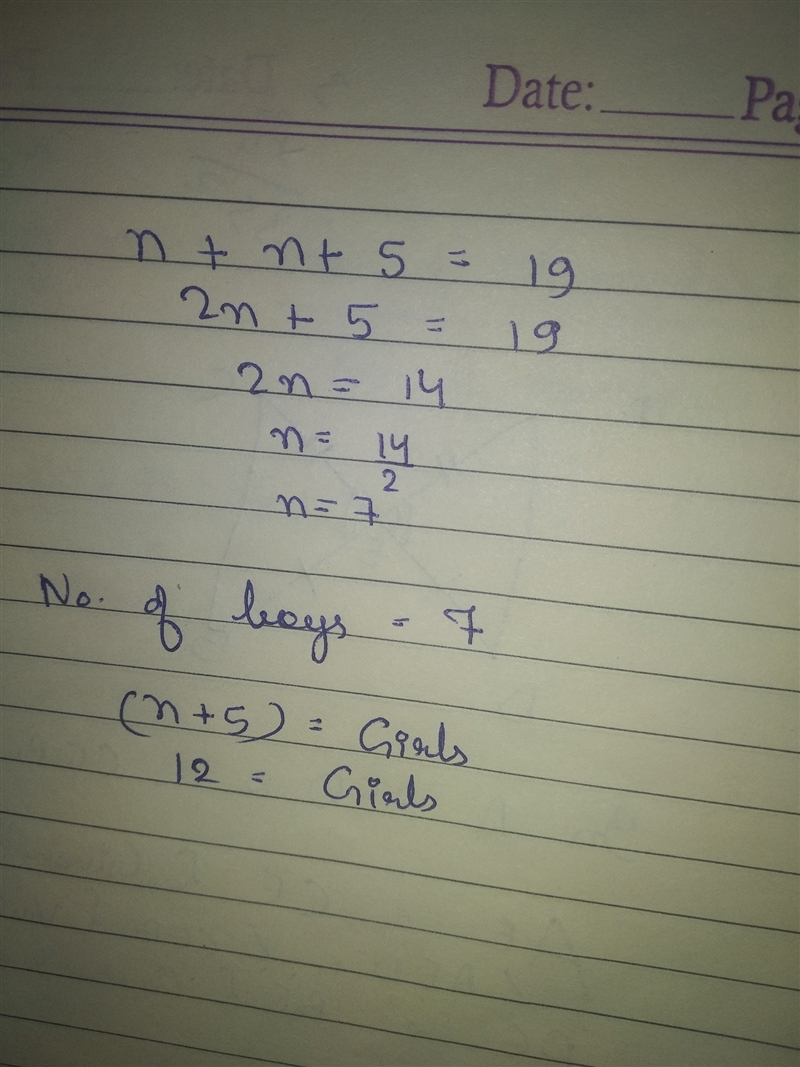 Date:______ Pag
n + n + 5 = 19
2n + 5 = 19
2n = 14
n = 14/2
n = 7
No. of boys = 7
(n + 5) = Girls
12 = Girls